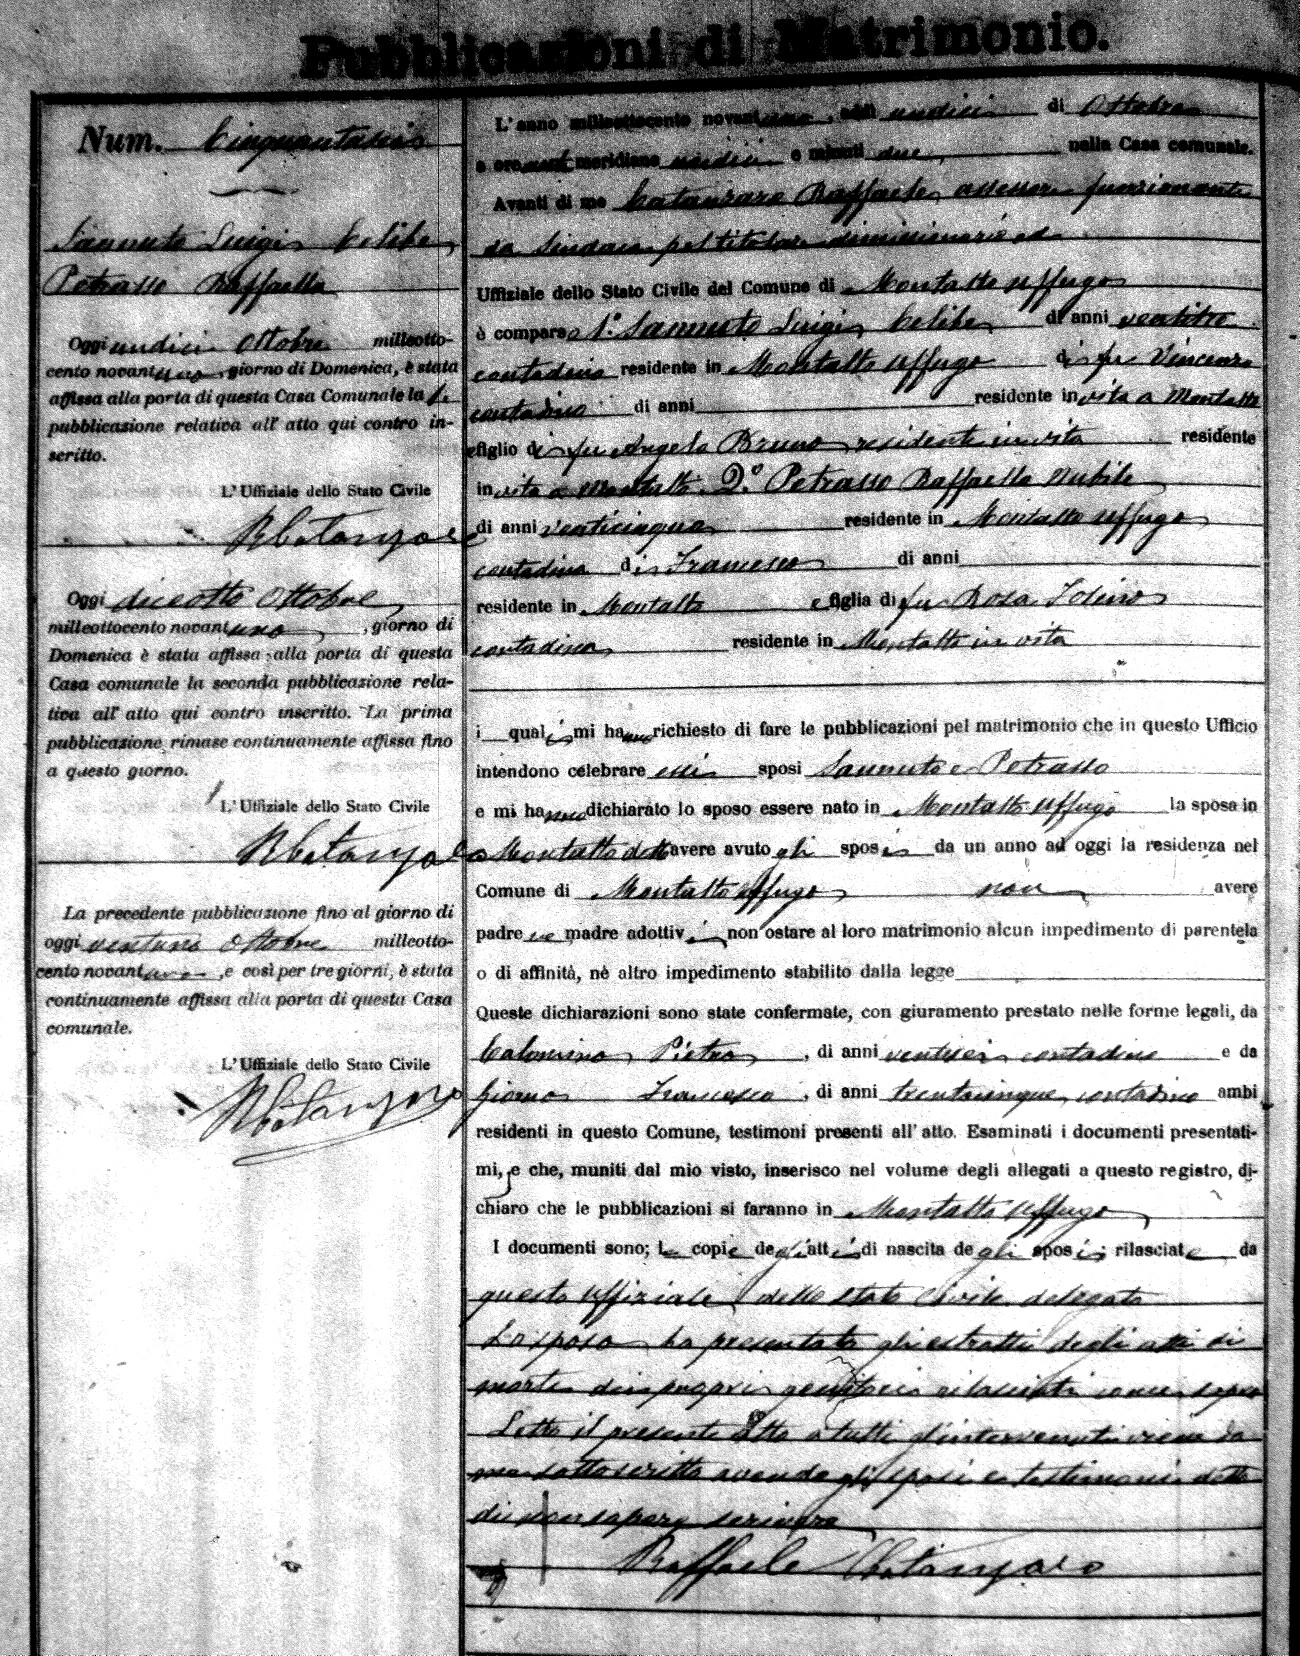 Pubblicazioni di Matrimonio.
Num. Cinquantasei
Sannuto Luigi celibe,
Petrasso Raffaella
Oggi undici Ottobre milleotto-
cento novantuno, giorno di Domenica, è stata
affissa alla porta di questa Casa Comunale la
pubblicazione relativa all' atto qui contro in-
scritto.
L' Uffiziale dello Stato Civile
RCatanzaro
Oggi diciotto Ottobre
milleottocento novantuno, giorno di
Domenica è stata affissa alla porta di questa
Casa comunale la seconda pubblicazione rela-
tiva all' atto qui contro inscritto. La prima
pubblicazione rimase continuamente affissa fino
a questo giorno.
L' Uffiziale dello Stato Civile
RCatanzaro
La precedente pubblicazione fino al giorno di
oggi ventuno Ottobre milleotto-
cento novantuno, e così per tre giorni, è stata
continuamente affissa alla porta di questa Casa
comunale.
L' Uffiziale dello Stato Civile
RCatanzaro
L'anno milleottocento novantuno, addì undici di Ottobre
a ore anti meridiane undici e minuti due, nella Casa comunale.
Avanti di me Catanzaro Raffaele, assessore funzionante
da Sindaco pel titolare dimissionario ed
Uffiziale dello Stato Civile del Comune di Montalto Uffugo
è comparso 1° Sannuto Luigi, celibe, di anni ventitre
contadino residente in Montalto Uffugo di fu Vincenzo
contadino di anni residente in vita a Montalto
e figlio di fu Angela Bruno residente in vita residente
in vita a Montalto. 2° Petrasso Raffaella nubile
di anni venticinque residente in Montalto Uffugo
contadina di Francesco di anni
residente in Montalto e figlia di fu Rosa
contadina residente in Montalto in vita
i quali mi hanno richiesto di fare le pubblicazioni pel matrimonio che in questo Ufficio
intendono celebrare essi sposi Sannuto e Petrasso
e mi hanno dichiarato lo sposo essere nato in Montalto Uffugo la sposa in
Montalto detto avere avuto gli sposi da un anno ad oggi la residenza nel
Comune di Montalto Uffugo non avere
padre ne madre adottivi, non ostare al loro matrimonio alcun impedimento di parentela
o di affinità, nè altro impedimento stabilito dalla legge
Queste dichiarazioni sono state confermate, con giuramento prestato nelle forme legali, da
Calomino Pietro, di anni ventisei contadino e da
Giorno Francesco, di anni trentacinque, contadino ambi
residenti in questo Comune, testimoni presenti all' atto. Esaminati i documenti presentati-
mi, e che, muniti dal mio visto, inserisco nel volume degli allegati a questo registro, di-
chiaro che le pubblicazioni si faranno in Montalto Uffugo
I documenti sono; le copie degli atti di nascita degli sposi; rilasciate da
questo Uffiziale dello stato Civile delegato
Lo sposo ha presentato gli estratti degli atti di
morte dei propri genitori rilasciati come sopra
Letto il presente atto a tutti gl'intervenuti viene da
me sottoscritto avendo gli sposi e testimoni detto
di non sapere scrivere
Raffaele Catanzaro